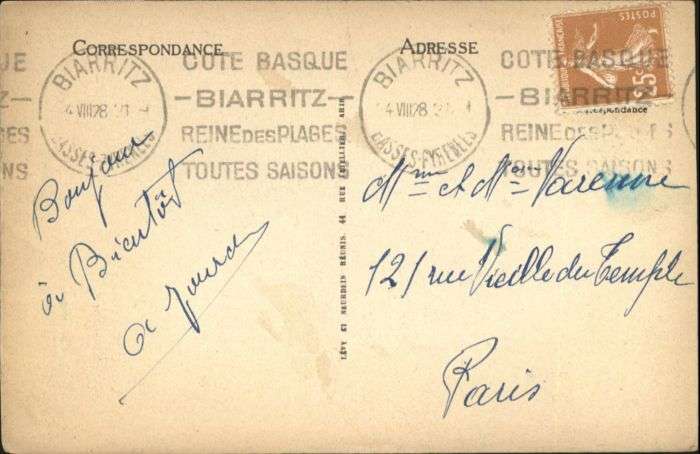 CORRESPONDANCE
ADRESSE
POSTES
BIARRITZ
4 VIII 28
BASSES-PYRENEES
CÔTE BASQUE
-BIARRITZ-
REINE DES PLAGES
TOUTES SAISONS
BIARRITZ
4 VIII 28
BASSES-PYRENEES
COTE BASQUE
-BIARRITZ-
REINE DES PLAGES
TOUTES SAISONS
Bonjour
à Bientôt
LÉVY ET NEURDEIN RÉUNIS, 44 RUE LETELLIER, PARIS
Mme et Mr Varenne
121 rue Vieille du Temple
Paris